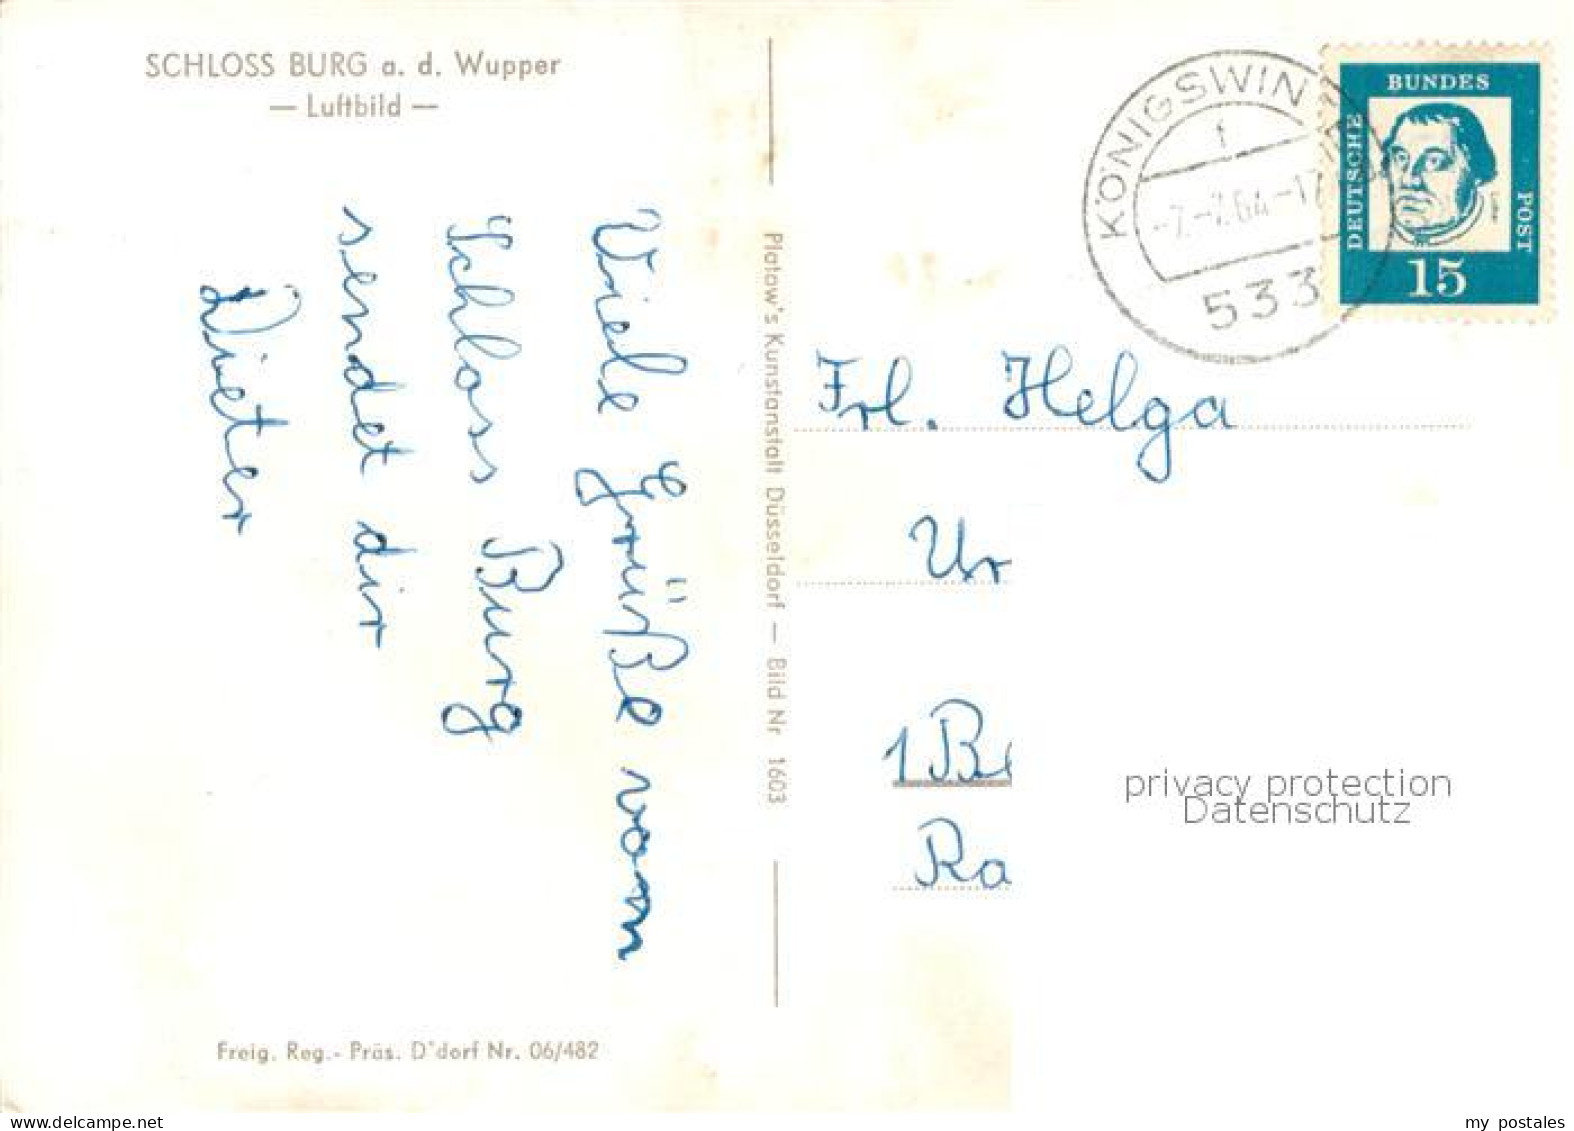 SCHLOSS BURG a. d. Wupper
— Luftbild —
Viele Grüße vom
Schloss Burg
sendet dir
Dieter
Freig. Reg.- Präs. D'dorf Nr. 06/482
Platow's Kunstanstalt Düsseldorf — Bild Nr 1603
KÖNIGSWIN
f
-7.-7.64-17
533
BUNDES
DEUTSCHE
POST
15
Frl. Helga
Ur
1 Be
Ra
privacy protection
Datenschutz
www.delcampe.net
my postales